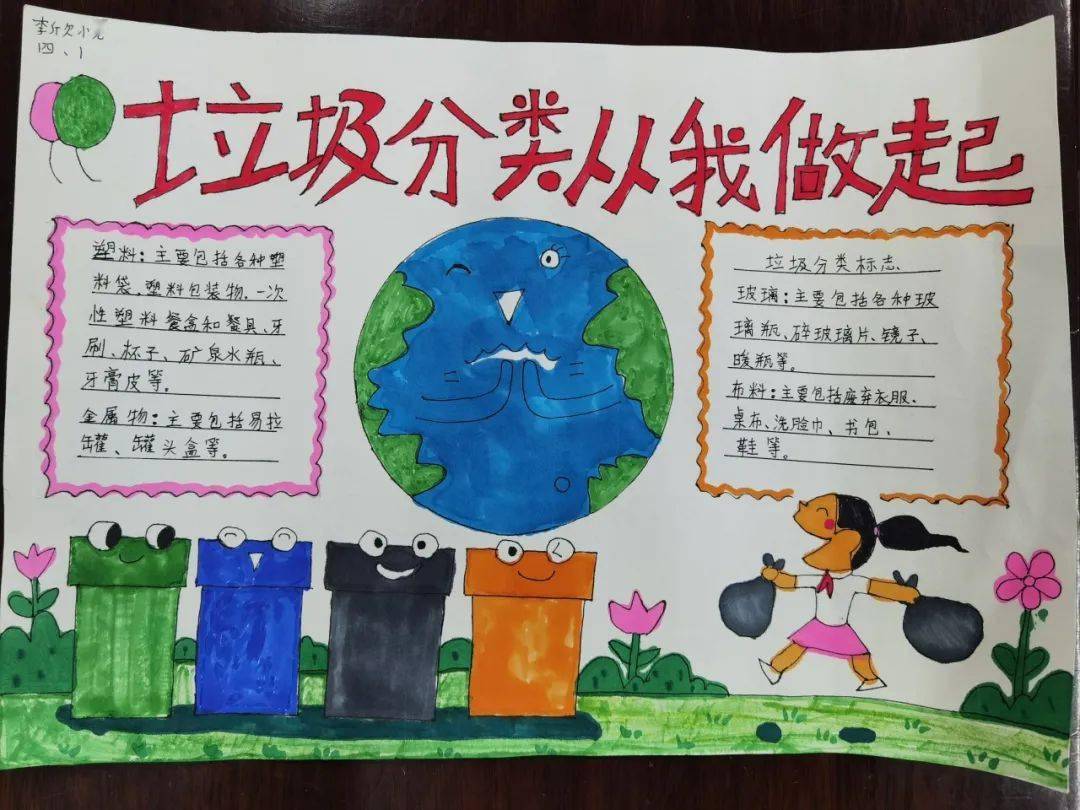 李欣
四、1
垃圾分类从我做起
塑料：主要包括各种塑
料袋、塑料包装物、一次
性塑料餐盒和餐具、牙
刷、杯子、矿泉水瓶、
牙膏皮等。
金属物：主要包括易拉
罐、罐头盒等。
垃圾分类标志
玻璃：主要包括各种玻
璃瓶、碎玻璃片、镜子、
暖瓶等。
布料：主要包括废弃衣服、
桌布、洗脸巾、书包、
鞋等。